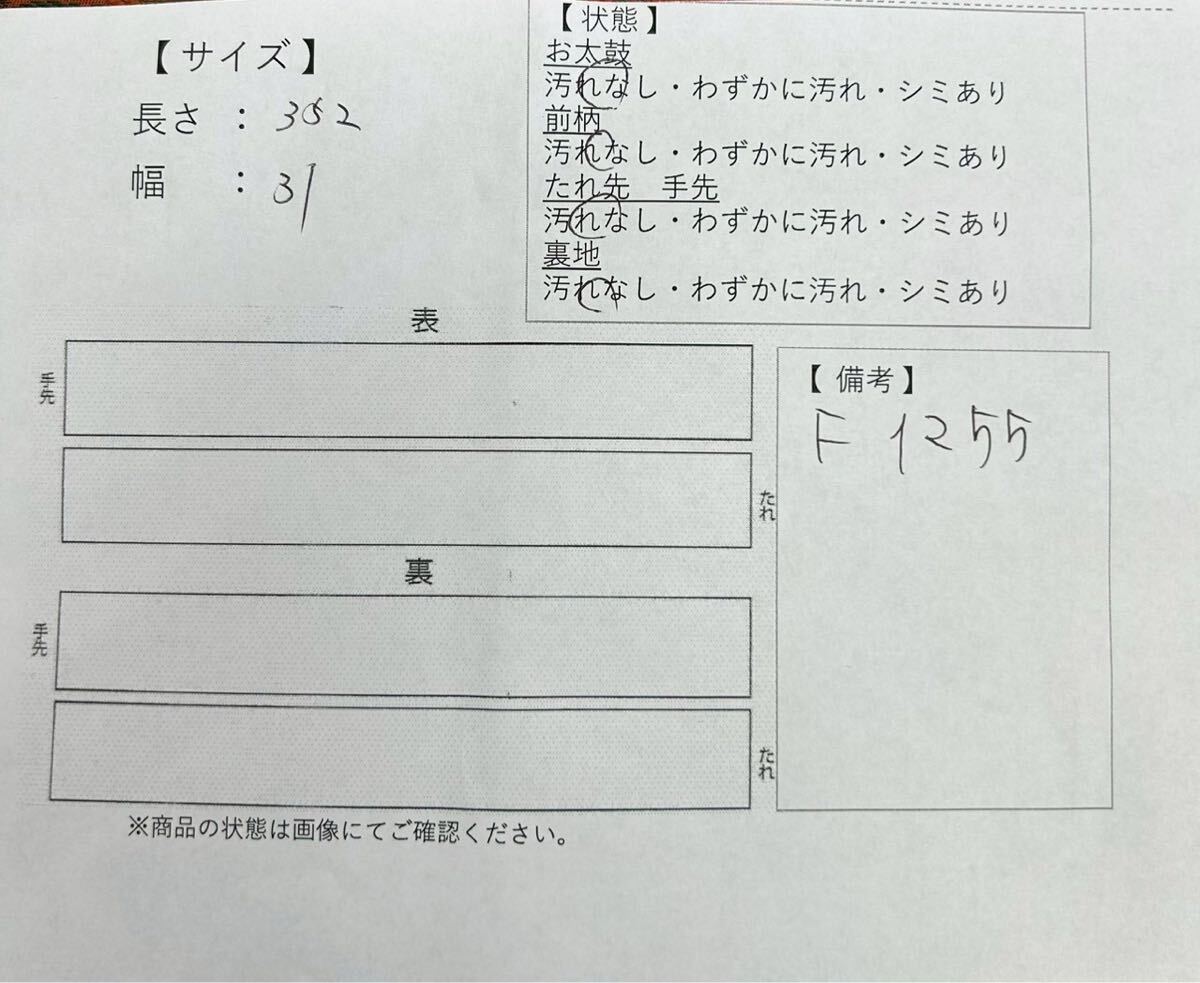 【 サイズ 】
長さ ： 352
幅 ： 31
【 状態 】
お太鼓
汚れなし・わずかに汚れ・シミあり
前柄
汚れなし・わずかに汚れ・シミあり
たれ先　手先
汚れなし・わずかに汚れ・シミあり
裏地
汚れなし・わずかに汚れ・シミあり
表
手先
たれ
裏
手先
たれ
【 備考 】
F 1255
※商品の状態は画像にてご確認ください。